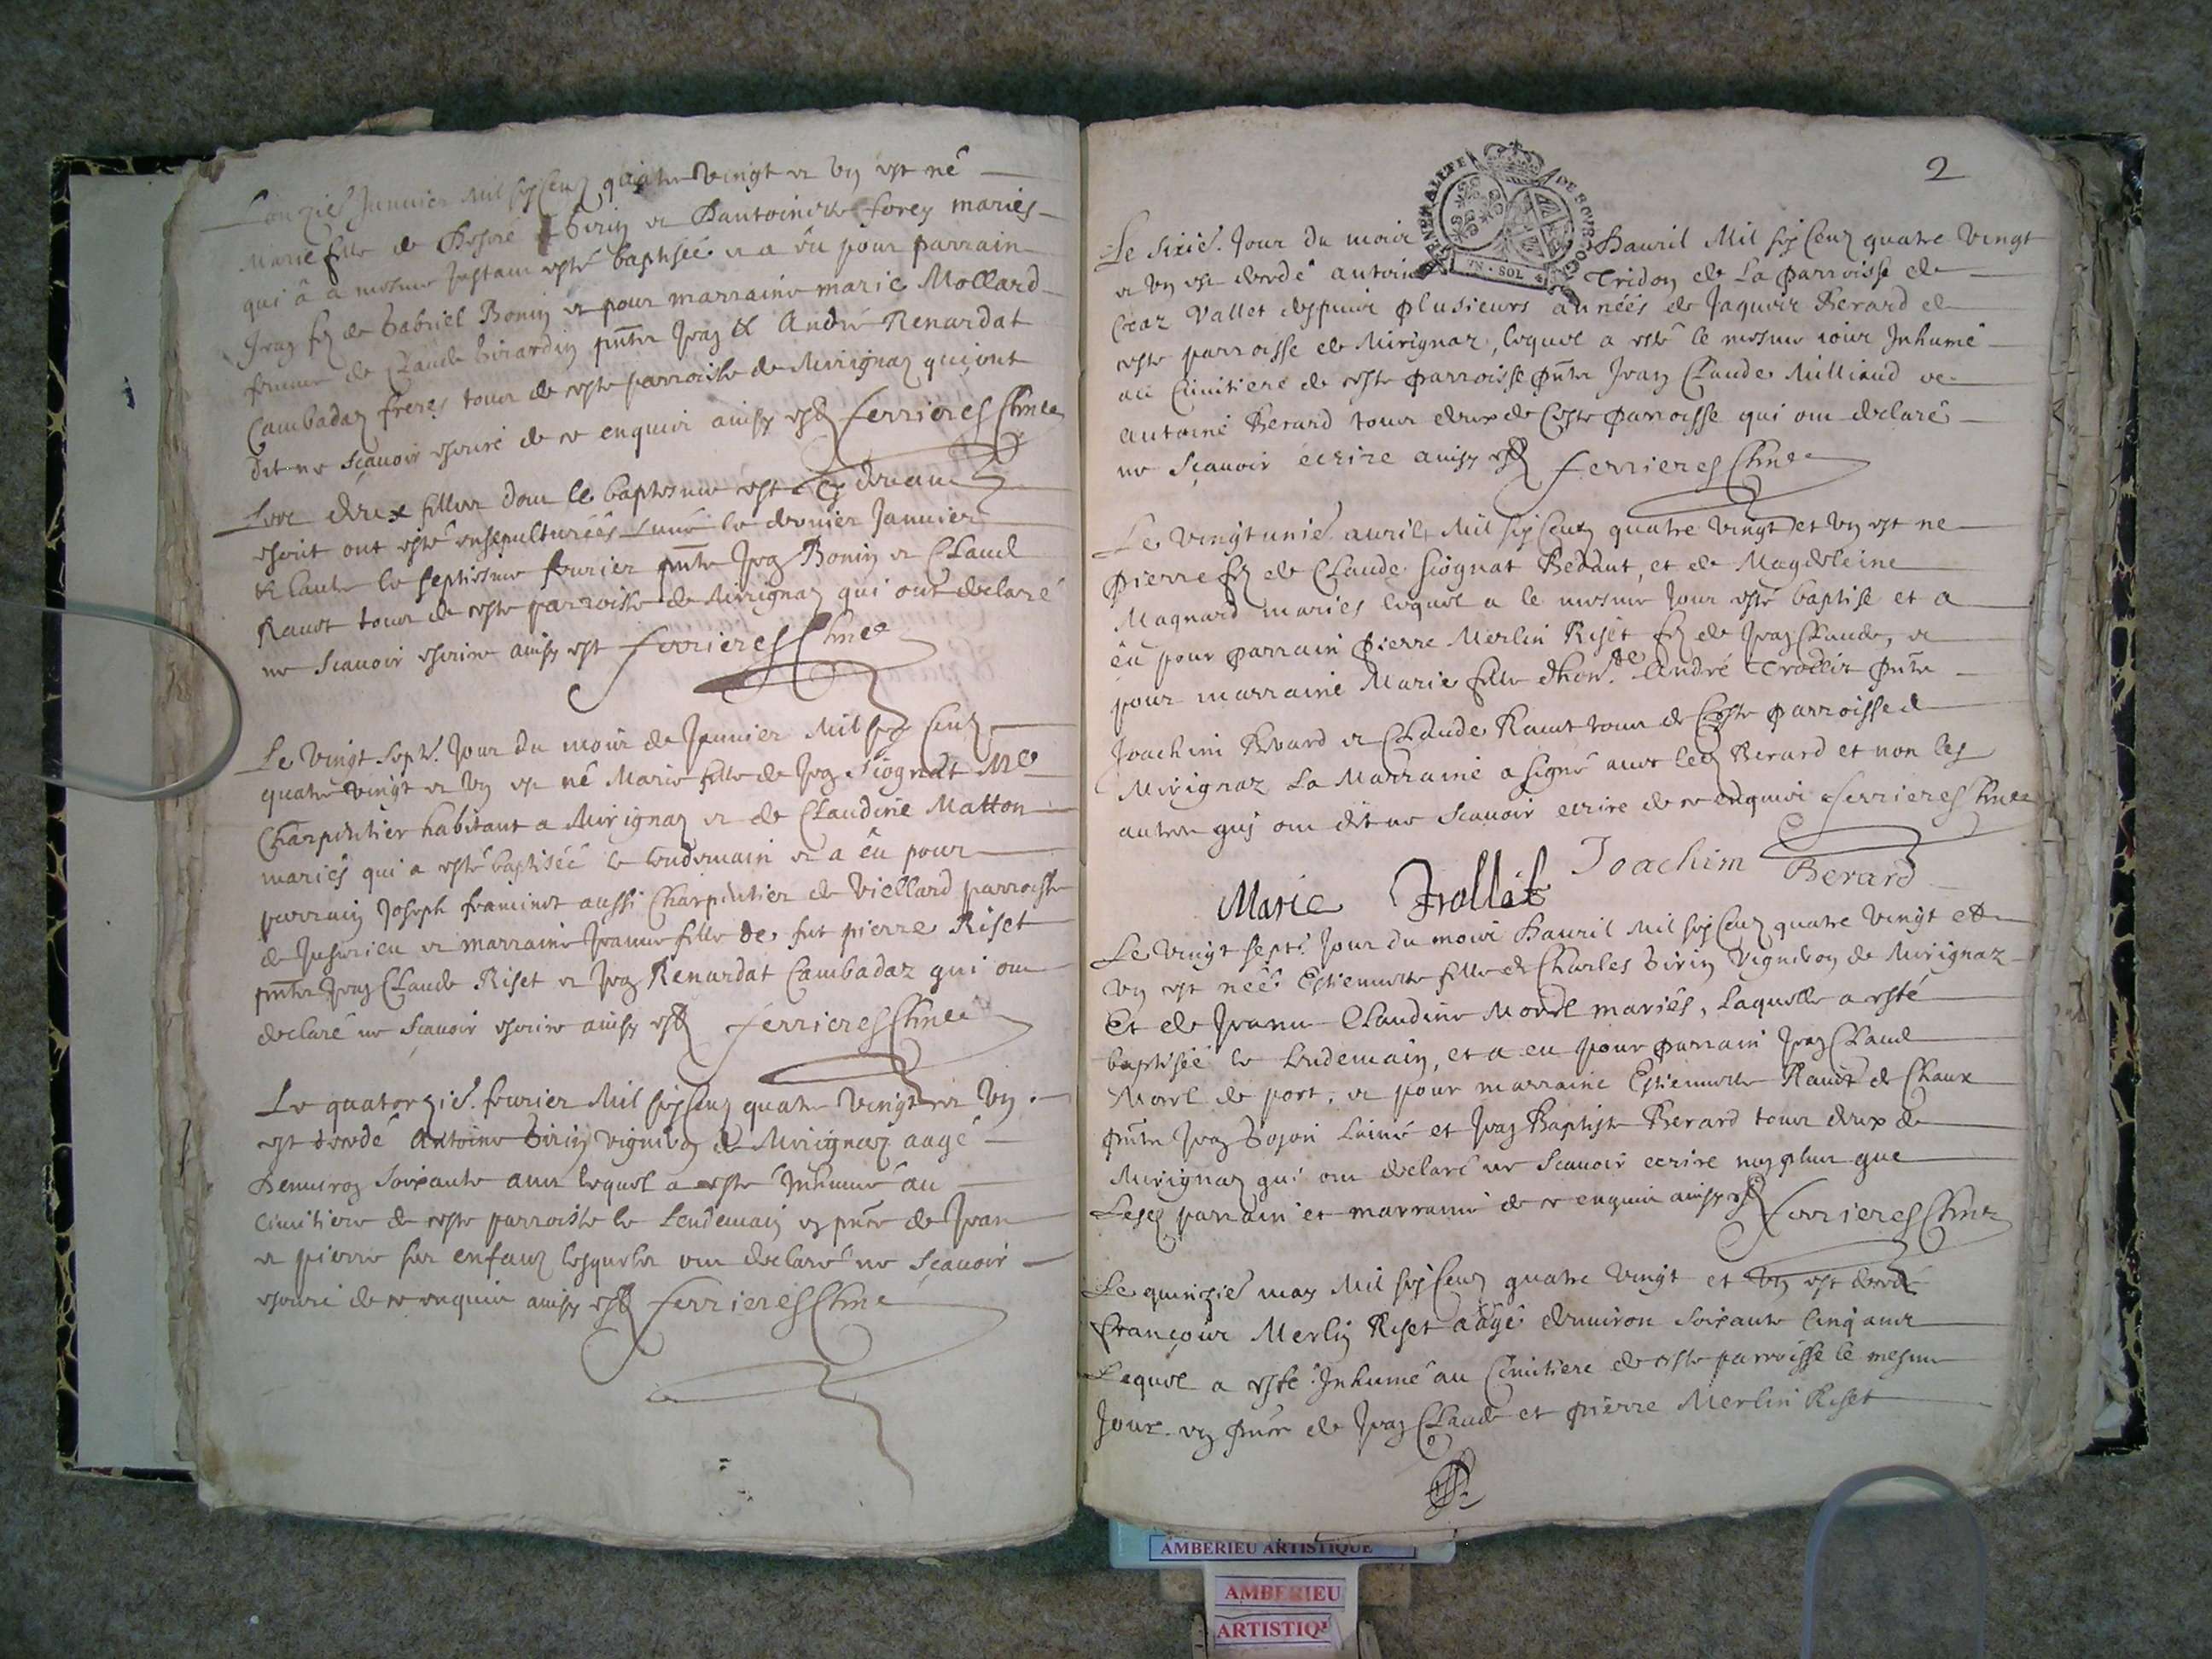 Lonzie. Januier Mil six Cens quatre vingt et vn est né
Marie fille de et Dantoinette forey mariés
qui a a mesme Instant esté baptiséé et a éu pour parrain
Jean fs de Gabriel Bonin et pour marraine marie Mollard
femme de Claude Girardin pnts Jean & André Renardat
Cambadaz freres tous de ceste parroisse de Mirignaz qui ont
dit ne sçauoir escrire de ce enquis ainsy est ferrieres
Les deux filles dont le baptesme est Cy deuant
escrit ont esté ensepulturéés Lune le dernier Januier
& lautre le septiesme feurier pnts Jean Bonin et Claude
Rauot tous de ceste parroisse de Mirignaz qui ont declaré
ne scauoir escrire ainsy est ferrieres
Le vingt sept. Jour du mois de Januier Mil six Cens
quatre vingt et vn est né Marie fille de Jean Siognat Me
Charpentier habitant a Mirignaz et de Claudine Matton
mariés qui a esté baptiséé le lendemain et a éu pour
parrain Joseph framinet aussi Charpentier de Viellard parroisse
de Jusurieu et marraine Jeanne fille de fut pierre Riset
pnts Jean Claude Riset et Jean Renardat Cambadaz qui ont
declaré ne scauoir escrire ainsy est ferrieres
Le quatorzie. feurier Mil six Cens quatre vingt et vn
est decedé Antoine Girin vigneron de Mirignaz aagé
Denuiron soixante ans lequel a esté Inhumé au
Cimitiere de ceste parroisse le Lendemain en pnce de Jean
et pierre ses enfans lesquels ont declaré ne sçauoir
escrire de ce enquis ainsy est ferrieres
2
GENERALITE DE BOURGOGNE
SOL
Le sixie. Jour du mois Dauril Mil six Cens quatre vingt
et vn est decedé antoine Tridon de La parroisse de
Vallet despuis plusieurs annéés de Jaques Berard de
ceste parroisse de Mirignaz, lequel a esté le mesme iour Inhumé
au Cimitiere de ceste parroisse pnts Jean Claude Milliaud et
antoine Berard tous deux de Ceste parroisse qui ont declaré
ne sçauoir écrire ainsy est ferrieres
Le vingt unie. auril Mil six Cens quatre vingt et vn est ne
pierre fs de Claude siognat Bedaut, et de Magdeleine
Magnard mariés lequel a le mesme Jour esté baptisé et a
éu pour parrain pierre Merlin Riset fs de Jean Claude, et
pour marraine Marie fille dhon. André Trollit pnts
Joachim Berard et Claude Rauot tous de Ceste parroisse de
Mirignaz La Marraine a signé auec led Berard et non les
autres qui ont dit ne scauoir ecrire de ce enquis ferrieres
Joachim Berard
Marie Trollit
Le vingt sept. Jour du mois Dauril Mil six Cens quatre vingt et
vn est néé Estiennette fille de Charles Girin vigneron de Mirignaz
Et de Jeanne Claudine Morel mariés, Laquelle a esté
baptiséé le Lendemain, et a eu pour parrain Jean Claude
Morel de port, et pour marraine Estiennette Rauot de Chaux
pnts Jean Goyon Laine et Jean Baptiste Berard tous deux de
Mirignaz qui ont declaré ne scauoir ecrire non plus que
Lesd parrain et marraine de ce enquis ainsy est ferrieres
Le quinzie may Mil six Cens quatre vingt et vn est decedé
françois Merlin Riset aagé denuiron soixante Cinq ans
Lequel a esté Inhumé au Cimitiere de ceste parroisse le mesme
Jour en pnce de Jean Claude et pierre Merlin Riset
AMBERIEU ARTISTIQUE
AMBERIEU
ARTISTIQU